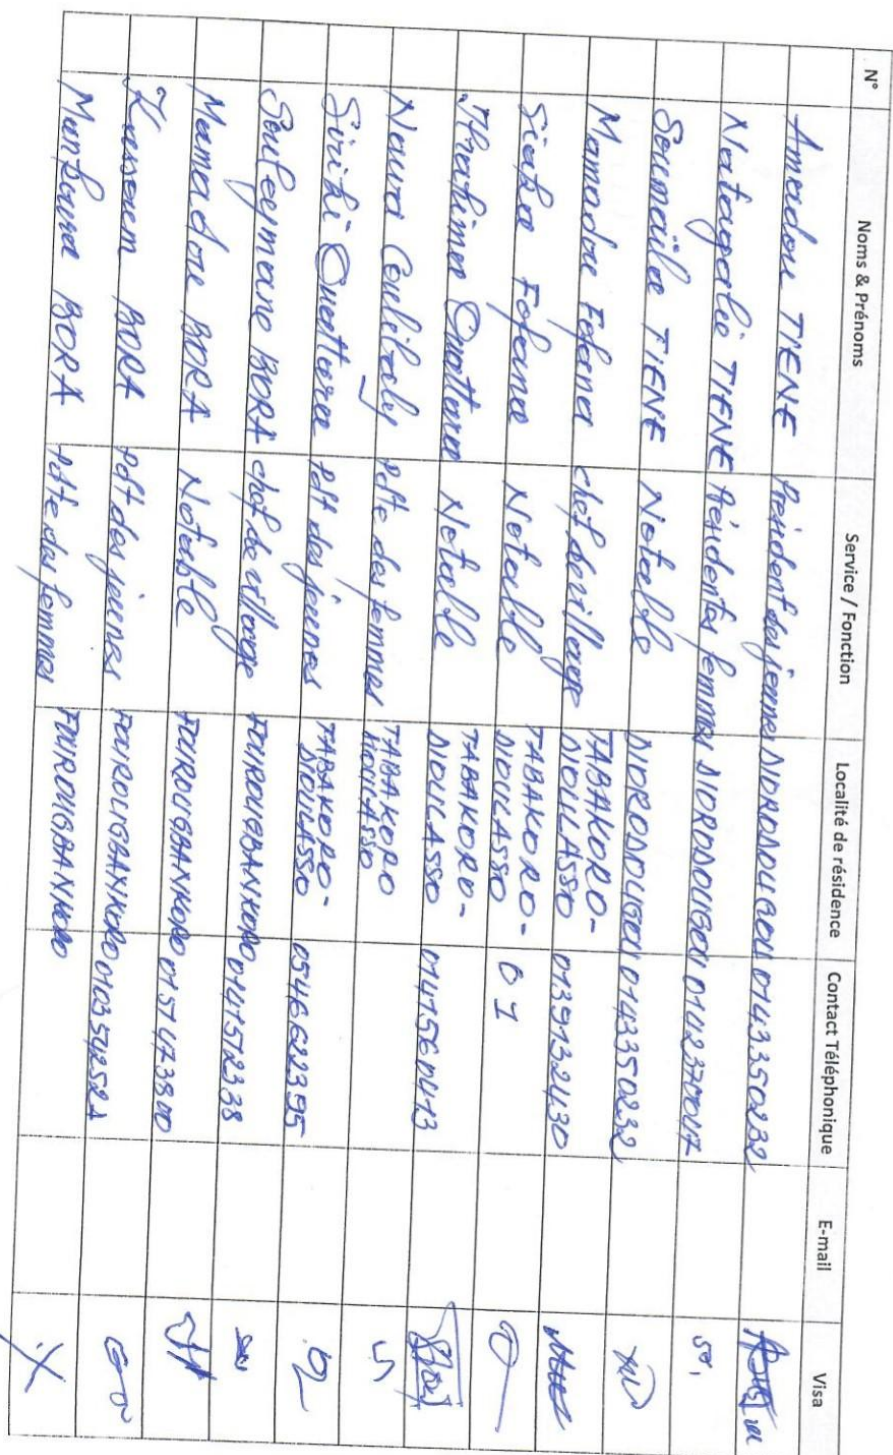 N° Noms & Prénoms Service / Fonction Localité de résidence Contact Téléphonique E-mail Visa
Amadou TIENE Président des jeunes DIORODOUGOU 0143350232
TIENE Présidente femmes DIORODOUGOU 0142370017
Soumaïla TIENE Notable DIORODOUGOU 0143350232
Mamadou Fofana chef de village TABAKORO-
DIOULASSO 0139132430
Siaka Fofana Notable TABAKORO-
DIOULASSO 01
Ibrahima Ouattara Notable TABAKORO-
DIOULASSO 0141560413
Nawa Coulibaly pdte des femmes TABAKORO
DIOULASSO
Siriki Ouattara pdt des jeunes TABAKORO-
DIOULASSO 0546622395
Souleymane BORA chef de village FOUROUGBANKORO 0141572338
Mamadou BORA Notable FOUROUGBANKORO 0151473800
BORA pdt des jeunes FOUROUGBANKORO
BORA pdte des femmes FOUROUGBANKORO